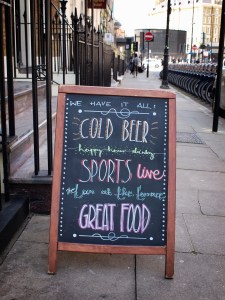 WE HAVE IT ALL!
COLD BEER
happy hour daily
SPORTS live
at the
GREAT FOOD